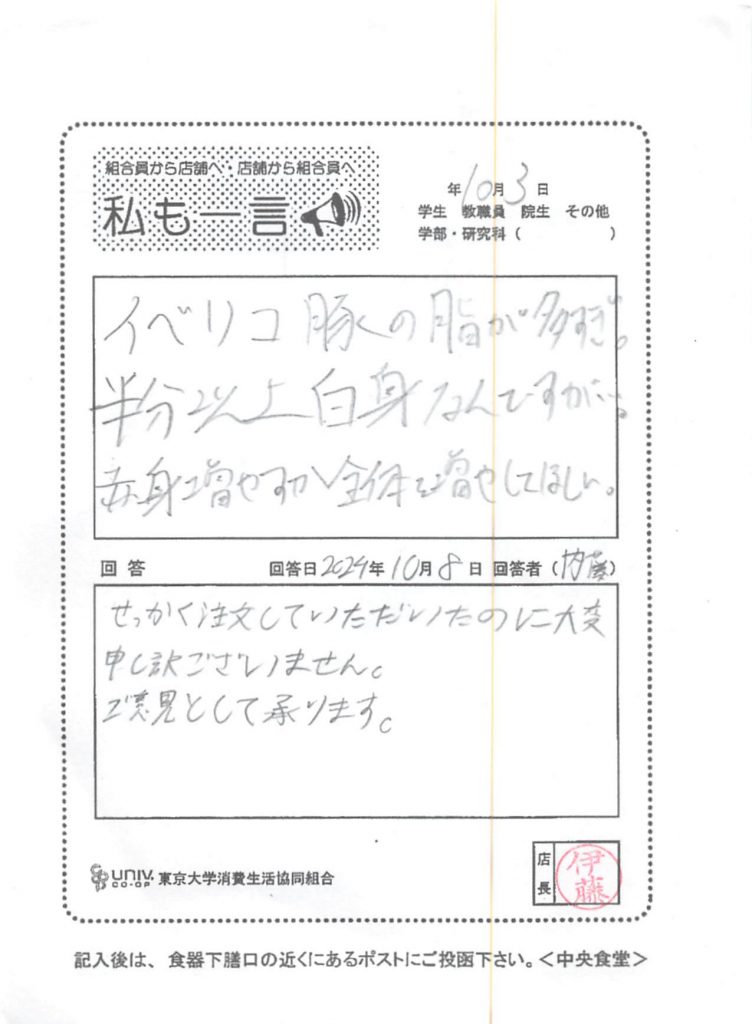 組合員から店舗へ・店舗から組合員へ
私も一言
年10月3日
学生 教職員 院生 その他
学部・研究科( )
イベリコ豚の脂が多すぎ。
半分以上白身なんですが…。
赤身増やすか全体を増やしてほしい。
回答 回答日2024年10月8日 回答者(内藤)
せっかく注文していただいたのに大変
申し訳ございません。
ご意見として承ります。
UNIV. CO-OP 東京大学消費生活協同組合
店長 伊藤
記入後は、食器下膳口の近くにあるポストにご投函下さい。<中央食堂>